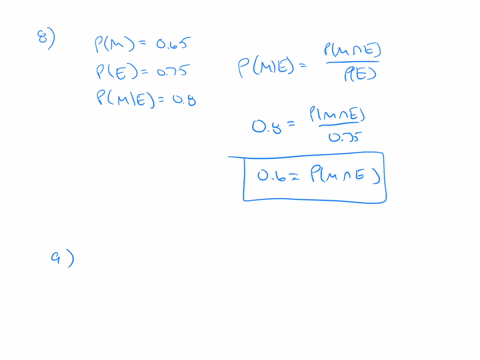 8) P(M) = 0.65
P(E) = 0.75
P(M|E) = 0.8
P(M|E) = P(M∩E) / P(E)
0.8 = P(M∩E) / 0.75
0.6 = P(M∩E)
9)